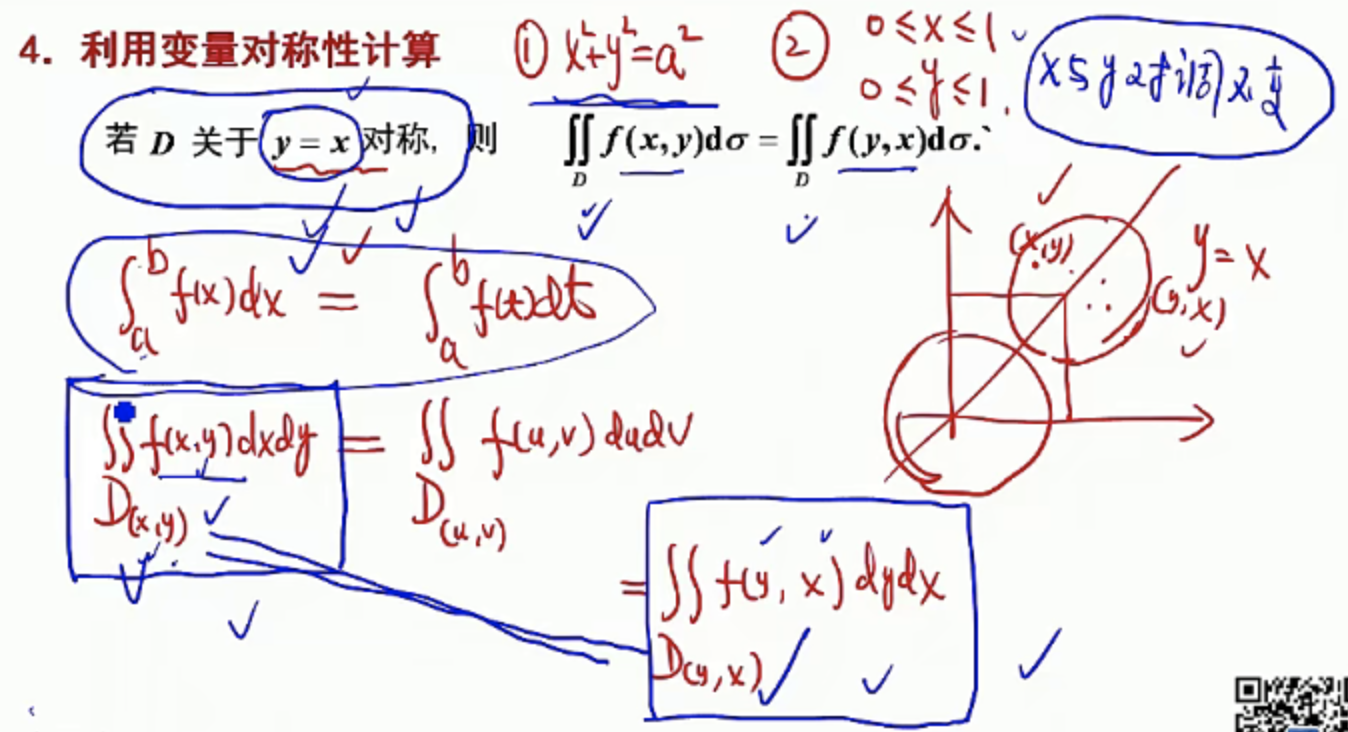 4. 利用变量对称性计算
① x²+y²=a²
② 0≤x≤1
0≤y≤1.
x与y对调不变
若 D 关于 y = x 对称, 则 ∬_D f(x,y)dσ = ∬_D f(y,x)dσ.
(x,y)
y=x
(y,x)
∫_a^b f(x)dx = ∫_a^b f(t)dt
∬_{D(x,y)} f(x,y)dxdy = ∬_{D(u,v)} f(u,v)dudv
= ∬_{D(y,x)} f(y,x)dydx